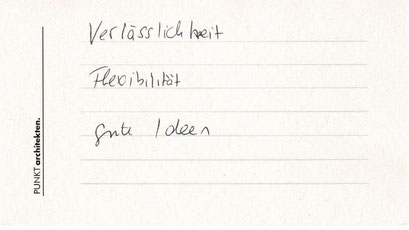 Verlässlichkeit
Flexibilität
gute Ideen
PUNKT architekten.